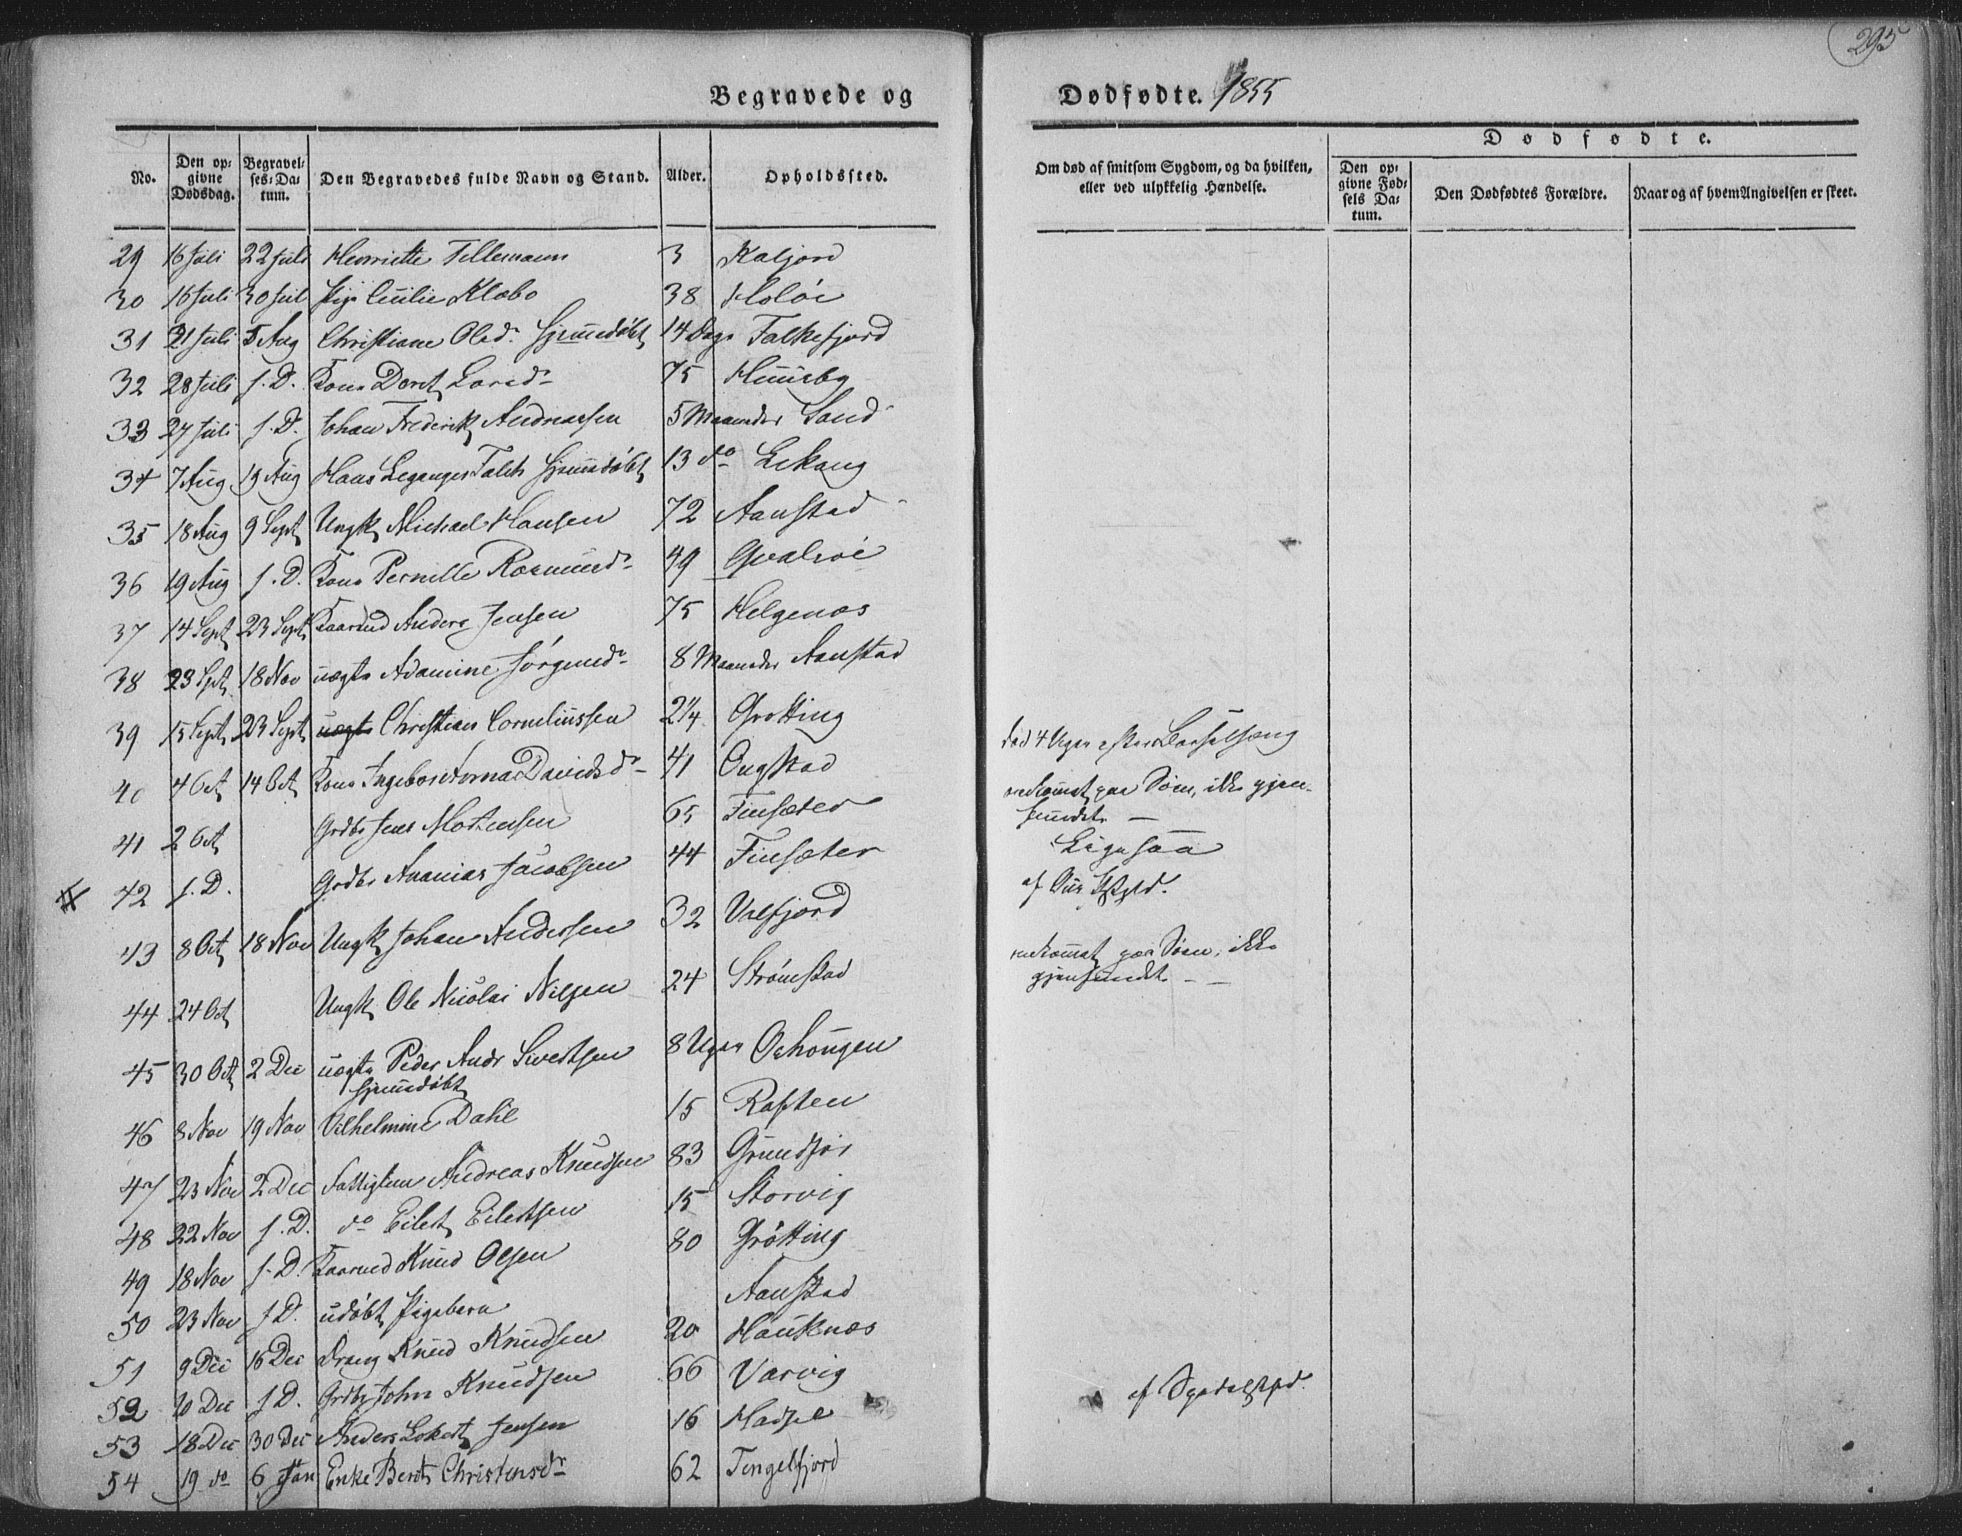 295
Begravede og Dødfødte. 1855
No. Den opgivne Dødsdag. Begravelses-Datum. Den Begravedes fulde Navn og Stand. Alder. Opholdssted.
Om død af smitsom Sygdom, og da hvilken, eller ved ulykkelig Hændelse.
Dødfødte.
Den opgivne Fødsels Datum. Den Dødfødtes Forældre. Naar og af hvem Angivelsen er skeet.
29 16 Juli 22 Juli Henriette Tellemann 3 Kaljord
30 16 Juli 30 Juli Pige Cecilie Klæbo 38 Holøe
31 21 Juli 5 Aug Christiane Olsdr Hjemdøbt 14 Dage Falkefjord
32 28 Juli s. D. Kone Doret Larsdr 75 Huusby
33 27 Juli s. D. Johan Frederik Andreassen 5 Maaneder Sand
34 7 Aug 19 Aug Hans Leganger Falch Hjemdøbt 13 do Lekang
35 18 Aug 9 Sept Ungk Michael Hansen 72 Aanstad
36 19 Aug s. D. Kone Pernille Rasmusdr 49 Qvalsøe
37 14 Sept 23 Sept Kaarmd Anders Jensen 75 Helgenæs
38 23 Spt 18 Nov uægte Adamine Jørgensdr 8 Maaneder Aanstad
39 15 Sept 23 Sept uægte Christian Corneliussen 2 1/4 Grotting
40 4 Oct 14 Oct Kone Davidsdr 41 Ongstad død 4 Uger efter Barselseng
41 2 Oct Grdbr Jens Mortensen 65 Finsæter omkommet paa Søen, ikke gjen-
fundet —
42 s. D. Grdbr Ananias Jacobsen 44 Finsæter Ligesaa
43 8 Oct 18 Nov Ungk Johan Andersen 32 Valfjord af
44 24 Oct Ungk Ole Nicolai Nilsen 24 Strømstad omkommet paa Søen, ikke
gjenfundet
45 30 Oct 2 Dec uægte Peder Andr Sivertsen 8 Uger Ochongen
hjemdøbt
46 8 Nov 19 Nov Vilhelmine Dahl 15 Raften
47 23 Nov 2 Dec Fattiglem Andreas Knudsen 83 Grundfør
48 22 Nov s. D. do Eilert Eilertsen 15 Storvig
49 18 Nov s. D. Kaarmd Knud Olsen 80 Grøtting
50 23 Nov s. D. udøbt Pigebarn Aanstad
51 9 Dec 16 Dec Dreng Knud Knudsen 20 Hauknæs
52 10 Dec s. D. Grdbr John Knudsen 66 Varvig
53 18 Dec 30 Dec Anders Lokert Jensen 16 Hadsel
54 19 do 6 Jan Enke Beret Christensdr 62 Tengelfjord